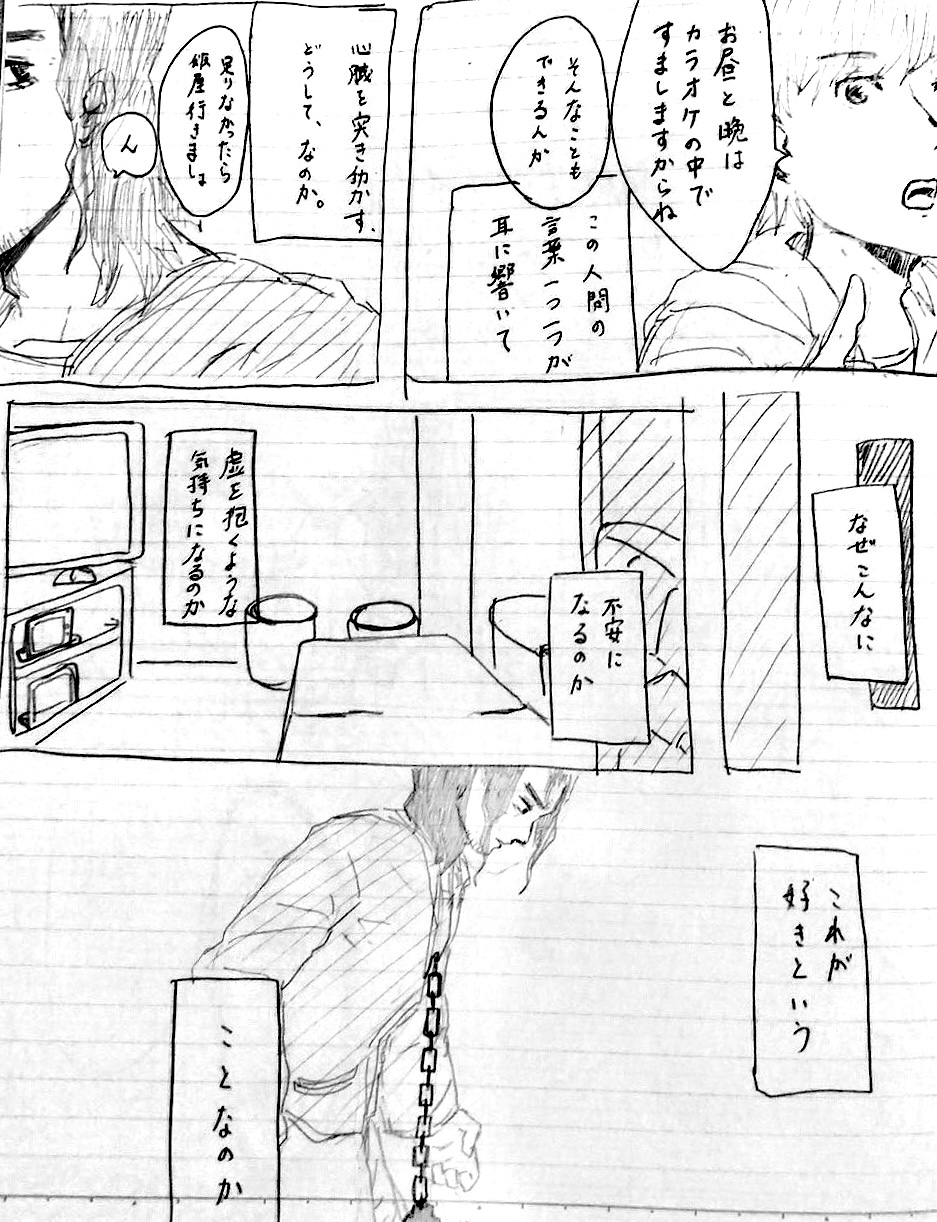 お昼と晩は
カラオケの中で
すましますからね
そんなことも
できるんか
この人間の
言葉一つ一つが
耳に響いて
心臓を突き動かす、
どうして、なのか。
足りなかったら
飯屋行きましょ
ん
なぜこんなに
不安に
なるのか
虚を抱くような
気持ちになるのか
これが
好きという
ことなのか